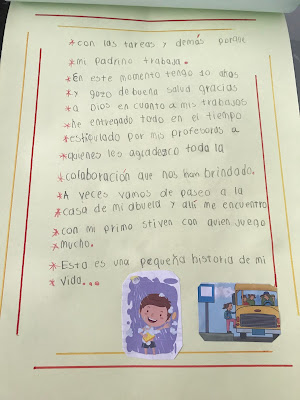 *con las tareas y demás porque
*mi padrino trabaja.
*En este momento tengo 10 años
*y gozo de buena salud gracias
*a Dios en cuanto a mis trabajos
*he entregado todo en el tiempo
*estipulado por mis profesoras a
*quienes les agradezco toda la
*colaboración que nos han brindado.
*A veces vamos de paseo a la
*casa de mi abuela y alli me encuentro
*con mi primo stiven con quien juego
*mucho.
*Esta es una pequeña historia de mi
*vida...